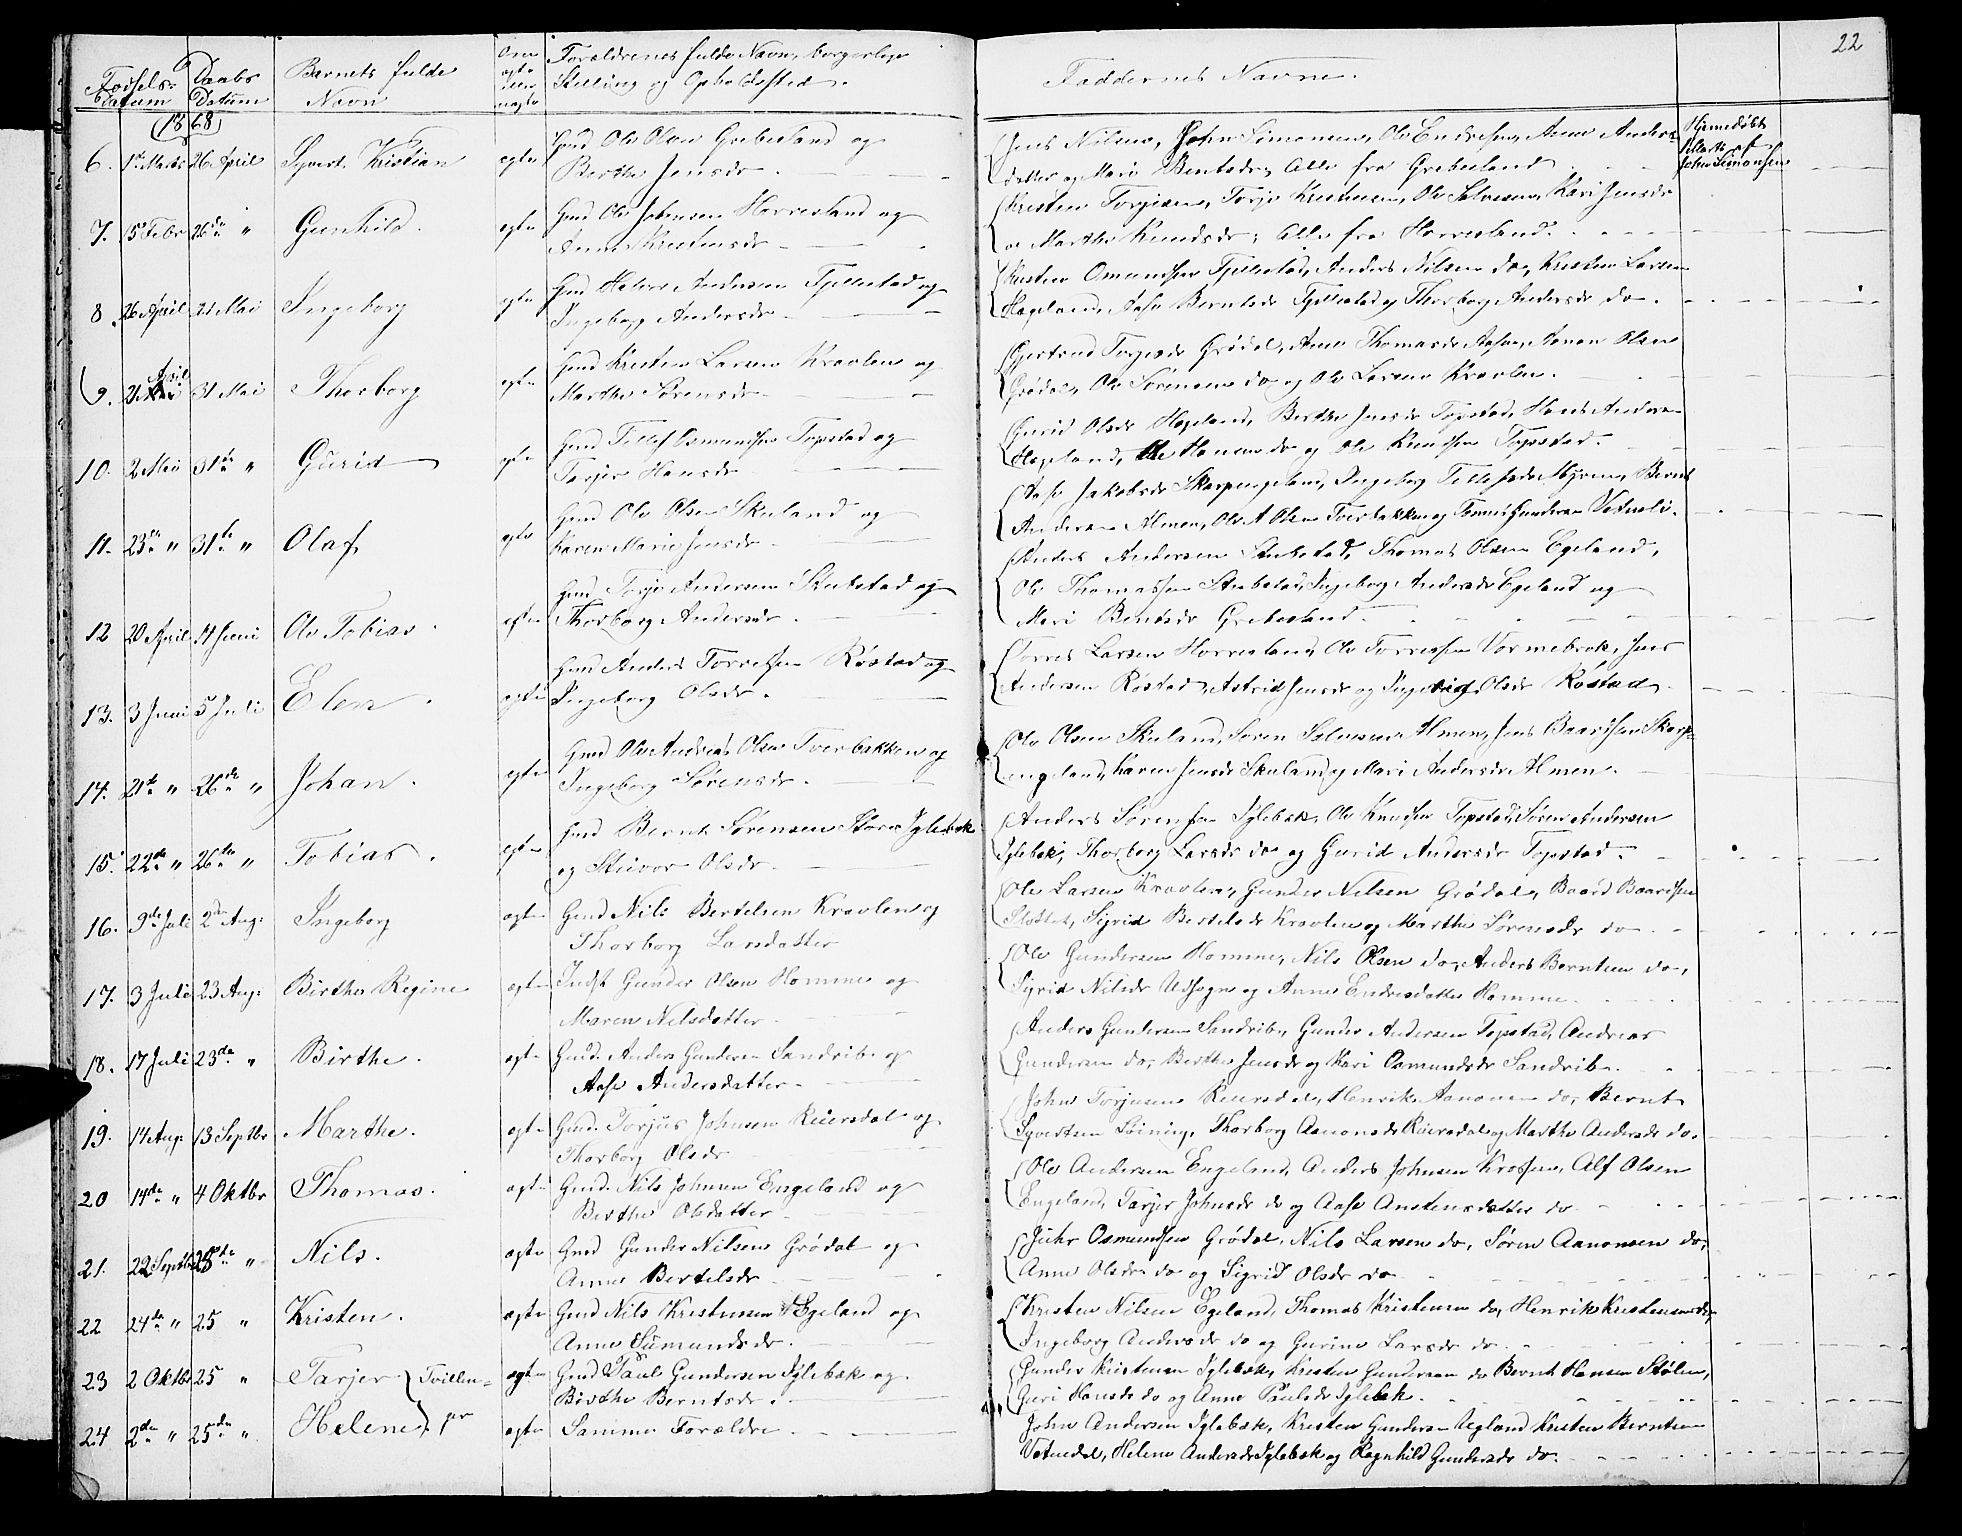 22
Fødsels- Datum
Daabs Datum
Barnets fulde Navn
Om ægte eller uægte
Forældrenes fulde Navn, borgerlige Stilling og Opholdssted.
Faddernes Navne.
1868
6. 1ste Marts 26 April Syvert Kristian ægte Gmd Ole Olsen Grebesland og
Berthe Jensdr.
Jens Nilsen, John Simonsen, Ole Endresen, Anne Anders-
datter og Mari Bentsdr, Alle fra Grebesland
Hjemmedøbt
Marts af
John Simonsen
7. 15 Febr 26de " Gunhild. ægte Gmd Ole Johnsen Horresland og
Anne Kristensdr
Kristen Torgisen, Torje Kristensen, Ole Salvesen, Kari Jensdr
og Marthe Knudsdr, Alle fra Horresland.
8. 26 April 21 Mai Ingeborg ægte Gmd Halvor Andersen Fjellestad og
Ingeborg Andersdr
Kristen Omundsen Fjellestad, Anders Nilsen do, Kristen Larsen
Høgeland, Aase Berntsdr Fjellestad og Thorborg Andersdr do.
9. 21 April 31 Mai Thorborg ægte Gmd Kristen Larsen Kravlen og
Marthe Sørensdr
Gjertrud Torgesdr Grødal, Anne Thomasdr Aasen, Aanon Olsen
Grødal, Ole Sørensen do og Ole Larsen Kravlen.
10. 2 Mai 31te " Gurid ægte Gmd Tellef Osmundsen Topstad og
Tarjer Hansdr
Gurid Olsdr Høgeland, Berthe Jensdr Topstad, Hans Andersen
Høgeland, Ole Hansen do og Ole Knudsen Topstad.
11. 23de " 31te " Olaf ægte Gmd Ole Olsen Skuland og
Karen Marie Jensdr
Aase Jakobsdr Skarpengeland, Ingeborg Tellefsdr Myren, Bernt
Andersen Almen, Ole A Olsen Tverbakken og Tønnes Gundersen Vatneli.
12 20 April 11 Juni Ole Tobias. ægte Gmd Torje Andersen Stubstad og
Thorborg Andersdr.
Anders Andersen Stubstad, Thomas Olsen Egeland,
Ole Thomassen Stubstad, Ingeborg Andersdr Egeland og
Mari Bentsdr Grebesland.
13. 3 Juni 5 Juli Elen. ægte Gmd Anders Torresen Røstad og
Ingeborg Olsdr.
Torres Larsen Horresland, Ole Torresen Vormebrok, Jens
Andersen Røstad, Astrid Jensdr og Ingebrig Olsdr Røstad
14. 21de " 26de " Johan. ægte Gmd Ole Andreas Olsen Tverbakken og
Ingeborg Sørensdr.
Ole Olsen Skuland, Søren Salvesen Almen, Jens Baardsen Skarp-
engeland, Karen Jensdr Skuland og Mari Andersdr Almen.
15. 22de " 26de " Tobias. ægte Gmd Bernt Sørensen Store Iglebæk
og Stuvor Olsdr.
Anders Sørensen Iglebæk, Ole Knudsen Topstad, Søren Andersen
Iglebæk, Thorborg Larsdr do og Gurid Andersdr Topstad.
16. 9de Juli 2den Aug. Ingeborg ægte Gmd Nils Bertelsen Kravlen og
Thorborg Larsdatter
Ole Larsen Kravlen, Gunder Nilsen Grødal, Baard Baardsen
Slottet, Sigrid Bertelsdr Kravlen og Marthe Sørensdr do
17. 3 Juli 23 Aug. Birthe Regine ægte Indst Gunder Olsen Homme og
Maren Nilsdatter
Ole Gundersen Homme, Nils Olsen do, Anders Berntsen do,
Sigrid Nilsdr Udhagen og Anne Endresdatter Homme.
18. 17 Juli 23de " Birthe. ægte Gmd. Anders Gundersen Sandrib og
Aase Andersdatter
Anders Gundersen Sandrib, Gunder Andersen Topstad, Andreas
Gundersen do, Berthe Jensdr og Kari Osmundsdr Sandrib.
19. 14 Aug. 13 Septbr Marthe. ægte Gmd. Torjus Johnsen Reiersdal og
Thorborg Olsdr
John Torjusen Reiersdal, Henrik Aanonsen do, Bernt
Syvertsen Loining, Thorborg Aanonsdr Reiersdal og Marthe Andersdr do.
20 14de " 4 Oktbr Thomas. ægte Gmd. Nils Johnsen Engeland og
Berthe Olsdatter
Ole Andersen Engeland, Anders Johnsen Krossen, Alf Olsen
Engeland, Tarjer Johnsdr do og Aase Anstensdatter do
21. 22 Septbr 25de " Nils. ægte Gmd Gunder Nilsen Grødal og
Anne Bertelsdr
Osmundsen Grødal, Nils Larsen do, Søren Aanonsen do,
Anne Olsdr do og Sigrid Olsdr do
22 24de " 25 " Kristen. ægte Gmd Nils Kristensen Egeland og
Anne Sumundsdr.
Kristen Nilsen Egeland, Thomas Kristensen do, Henrik Kristensen do,
Ingeborg Andersdr do og Gurine Larsdr do
23 2 Oktbr 25 " Tarjer Tvillin- ægte Gmd Paul Gundersen Iglebæk og
Birthe Berntsdr.
Gunder Kristensen Iglebæk, Kristen Gundersen do Bernt Hansen Stølen,
Guri Hansdr do og Anne Paulsdr Iglebæk.
24 2den " 25de " Helene ger ægte Samme Forældre
John Andersen Iglebæk, Kristen Gundersen Ugland Kristen Berntsen
Vatnedal, Helene Andersdr Iglebæk og Ragnhild Gundersdr do.